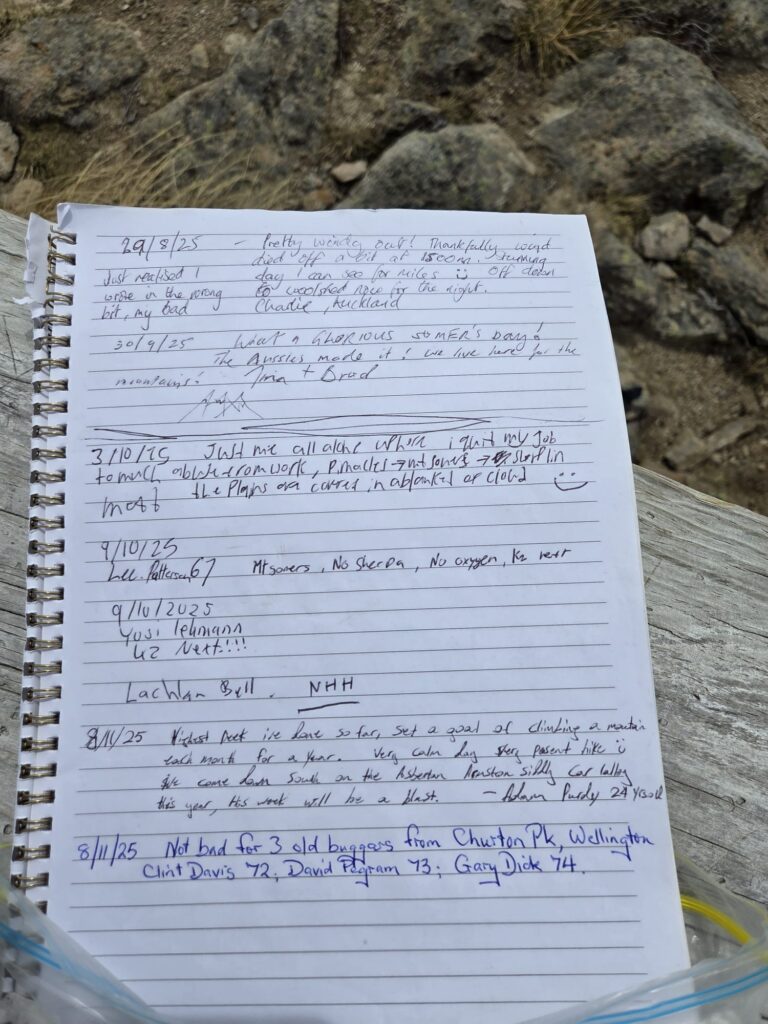 29/8/25 - Pretty windy out! Thankfully wind
died off a bit at 1500m. Stunning
day I can see for miles Off down
to woolshed now for the night.
Charlie, Auckland
Just realised I
wrote in the wrong
bit, my bad
30/9/25 What a GLORIOUS SUMER'S Day!
The Aussies made it! We live here for the
mountains! Tina + Brad
3/10/25 Just me all alone i quit my Job
to much from work, Pinacles → mt somers →
the Plains are in a blanket of cloud
matt
9/10/25
Lee. Patterson 67 Mt somers, No Sherpa, No oxygen, K2 next
9/10/2025
Yusi lehmann
K2 Next!!!
Lachlan Bell. NHH
8/11/25 Highest Peek ive done so far, set a goal of climbing a mountain
each month for a year. Very calm day very hike
come down South on the car
this year, this week will be a blast. - Adam Purdy 24
8/11/25 Not bad for 3 old buggers from Churton Pk, Wellington
Clint Davis 72; David Pegram 73; Gary Dick 74.